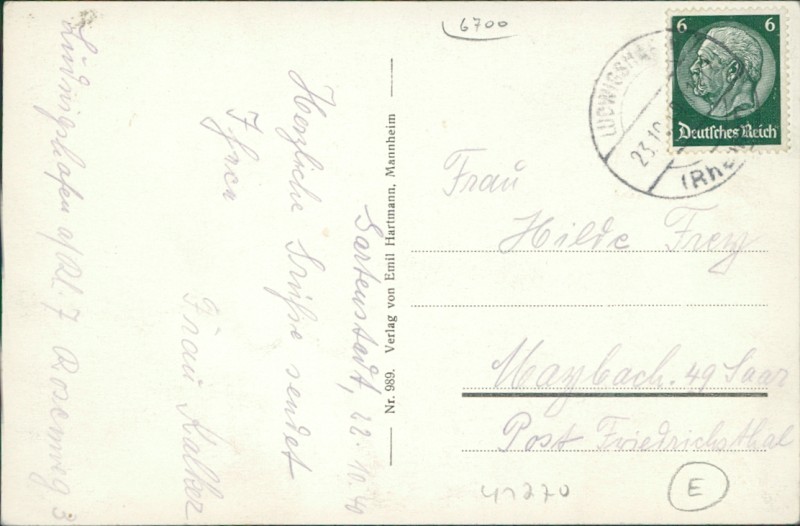 6700
6 6
Deutsches Reich
LUDWIGSHAF
23.10.
(Rhe
Gartenstadt, 22. 10. 40
Herzliche Grüße sendet
Ihnen
Frau Kalker
Ludwigshafen a/Rh. 7 Rosenweg 3
Nr. 989. Verlag von Emil Hartmann, Mannheim
Frau
Hilde Frey
Maybach. 49 Saar
Post Friedrichsthal
41270
E